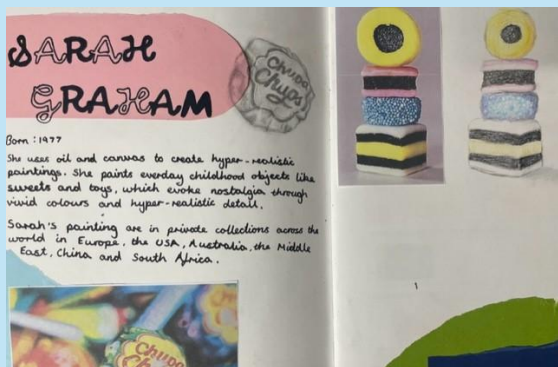 SARAH
GRAHAM
Chupa
Chups
Born : 1977
She uses oil and canvas to create hyper-realistic
paintings. She paints everday childhood objects like
sweets and toys, which evoke nostalgia through
vivid colours and hyper-realistic detail.
Sarah's painting are in private collections across the
world in Europe, the USA, Australia, the Middle
East, China and South Africa.
Chupa